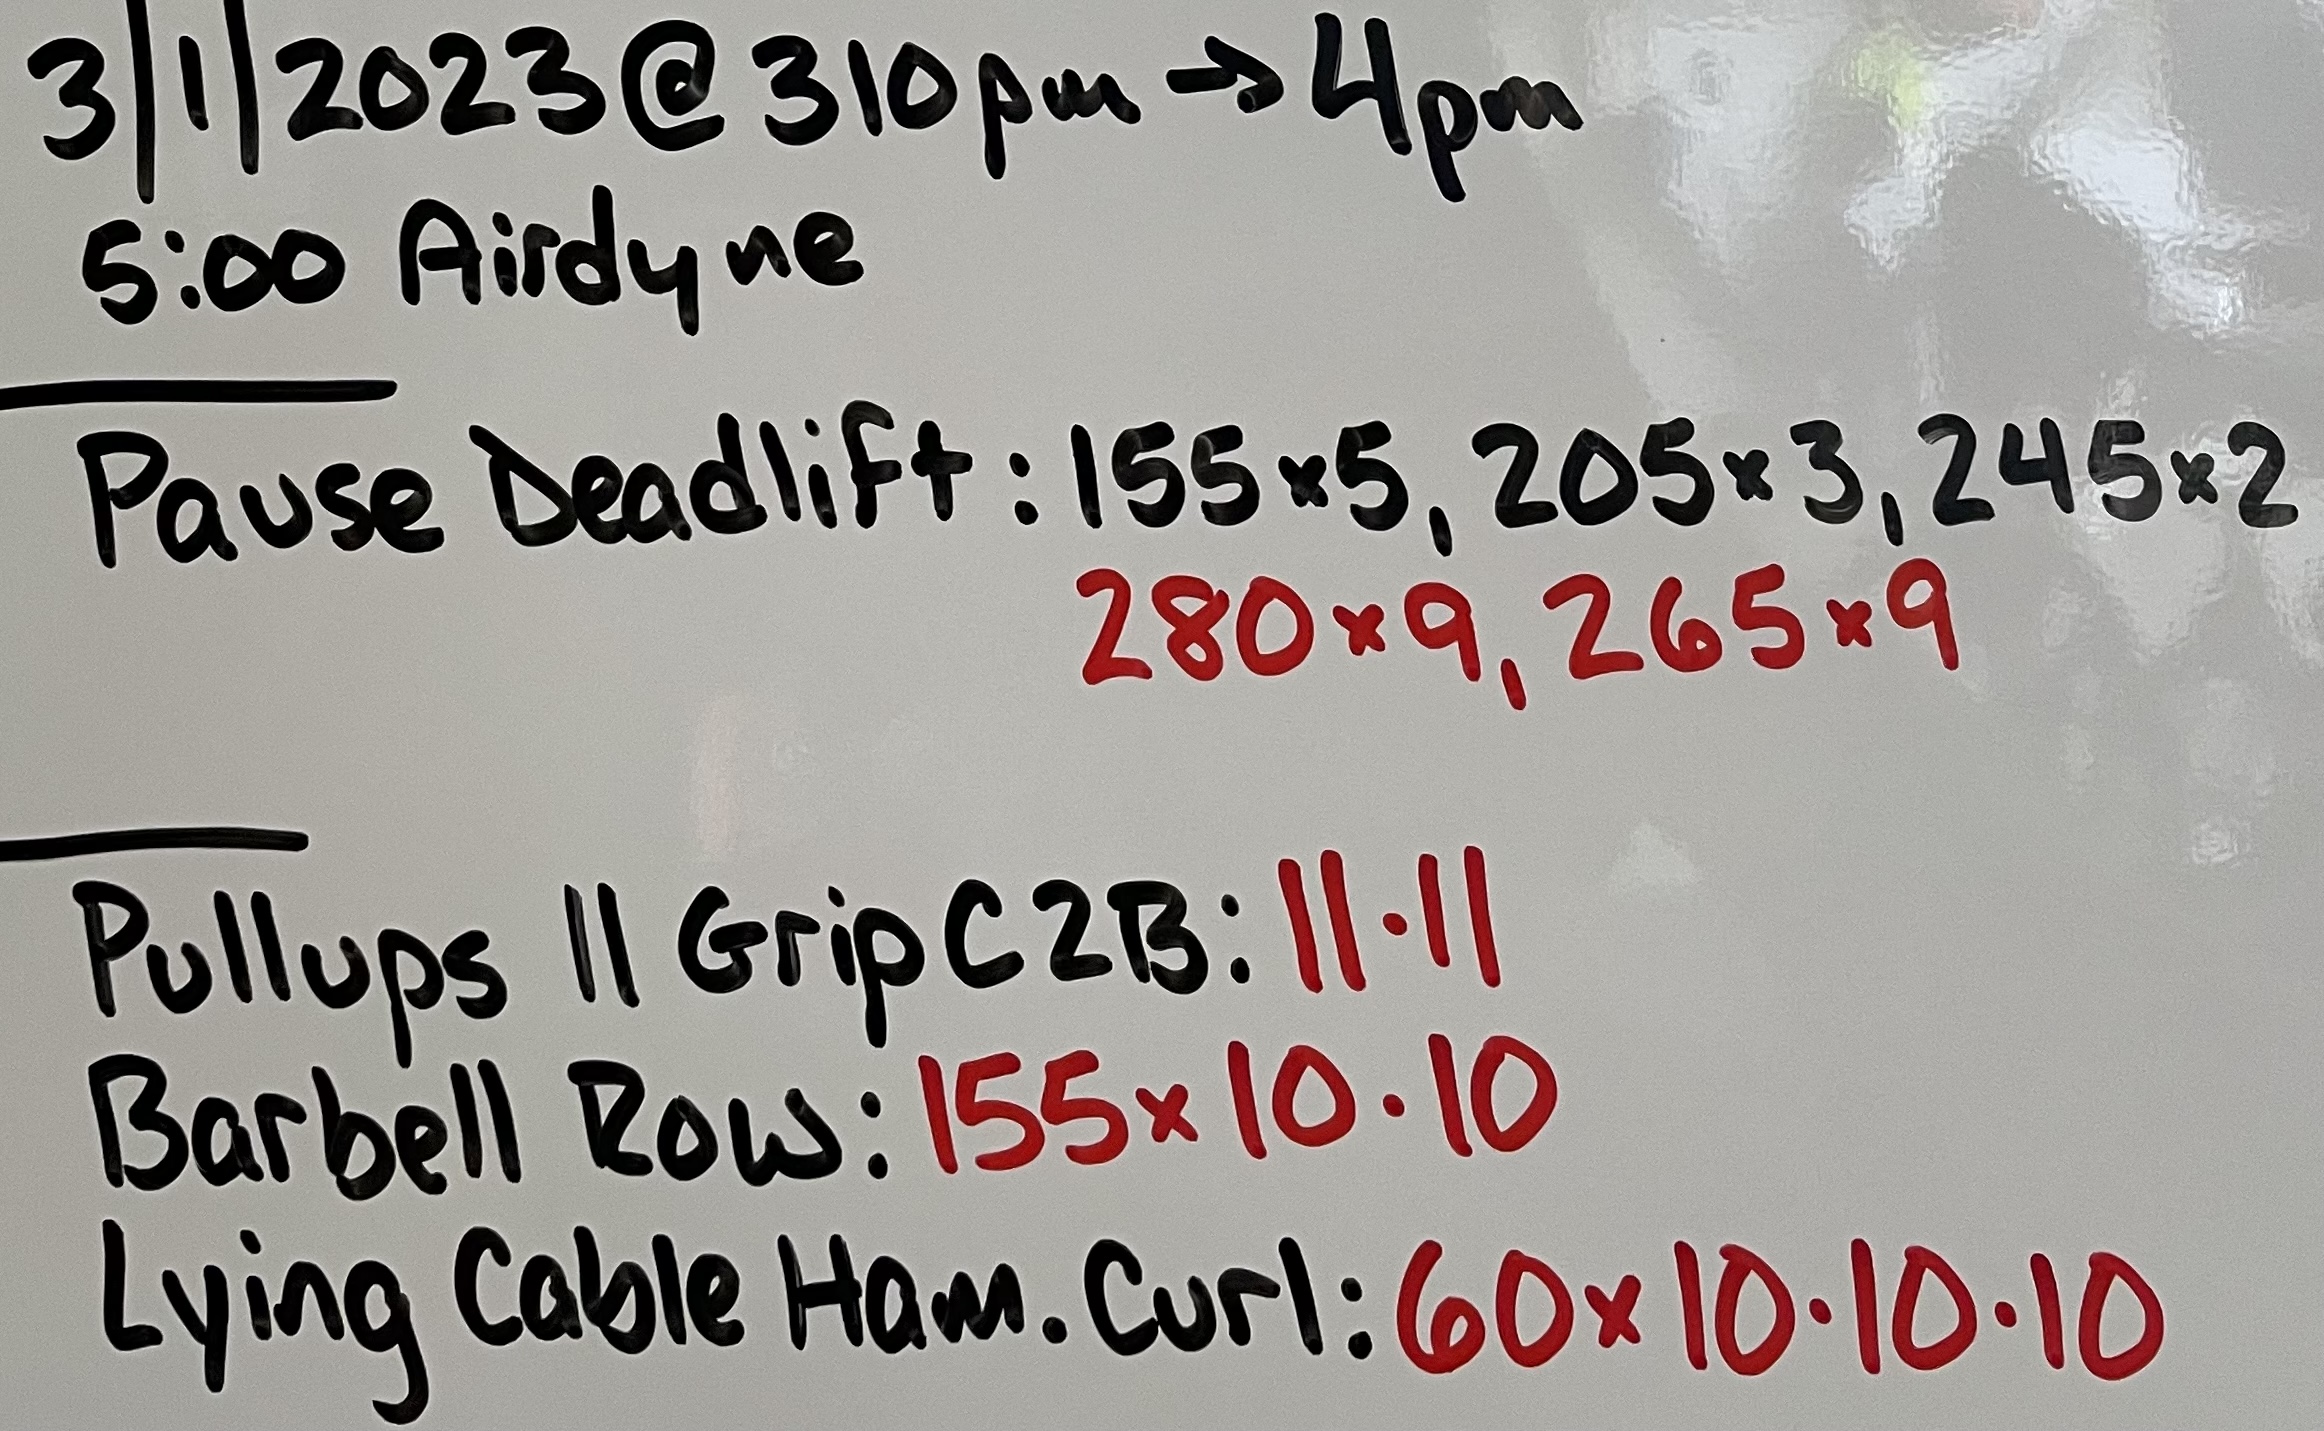 3/1/2023 @ 310pm → 4pm
5:00 Airdyne
Pause Deadlift: 155x5, 205x3, 245x2
280x9, 265x9
Pullups || Grip C2B: 11·11
Barbell Row: 155x10·10
Lying Cable Ham. Curl: 60x10·10·10